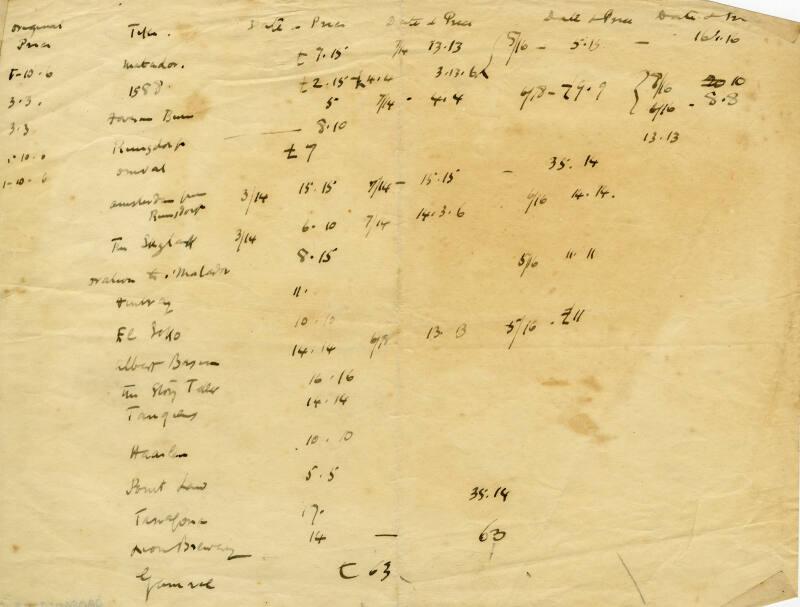 original Title. Date & Price Date & Price Date & Price Date & Pr
Price
Matador. £ 7.15 7/14 13.13 5/16 - 5.15 - 16.10
5-10.6 1588. £2.15 4.4 3.13.6 8/16 10
3.3. 5 7/14 - 4.4 6/18 - £9.9 6/16 - 8.8
3.3 Runsdorp 8.10 13.13
1-10.0 Omval £7
1-10.6 Amsterdam from 3/14 15.15 7/14 - 15.15 - 35.14
Runsdorp
The 3/14 6.10 7/14 14.3.6 6/16 14.14.
Ovation to Matador 8.15 5/16 11.11
11.
El Soko 10.10
Albert Basin 14.14 6/18 13.13 5/16 - £11
The Story Teller 16.16
Tangiers 14.14
Haarlem 10.10
Point Law 5.5
Tarragona 17. 35.14
Brewery 14 - 63
63